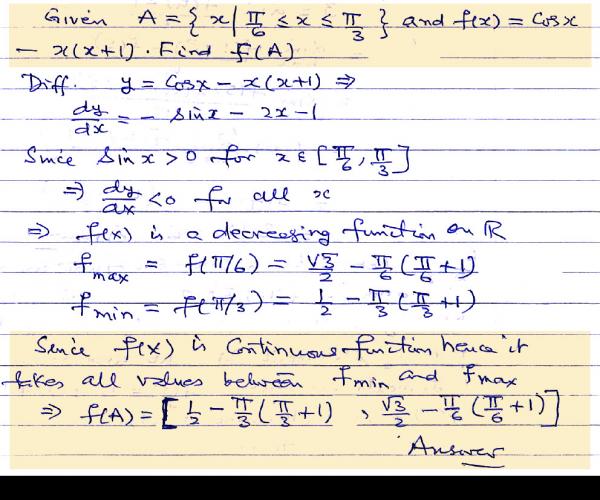 Given A = { x | π/6 ≤ x ≤ π/3 } and f(x) = Cosx
– x(x+1). Find f(A)
Diff. y = Cosx – x(x+1) ⇒
dy/dx = – sinx – 2x – 1
Since sinx > 0 for x ∈ [π/6, π/3]
⇒ dy/dx < 0 for all x
⇒ f(x) is a decreasing function on R
f max = f(π/6) = √3/2 – π/6 (π/6 + 1)
f min = f(π/3) = 1/2 – π/3 (π/3 + 1)
Since f(x) is Continuous function hence it
takes all values between f min and f max
⇒ f(A) = [ 1/2 – π/3 (π/3 + 1) , √3/2 – π/6 (π/6 + 1) ]
Answer